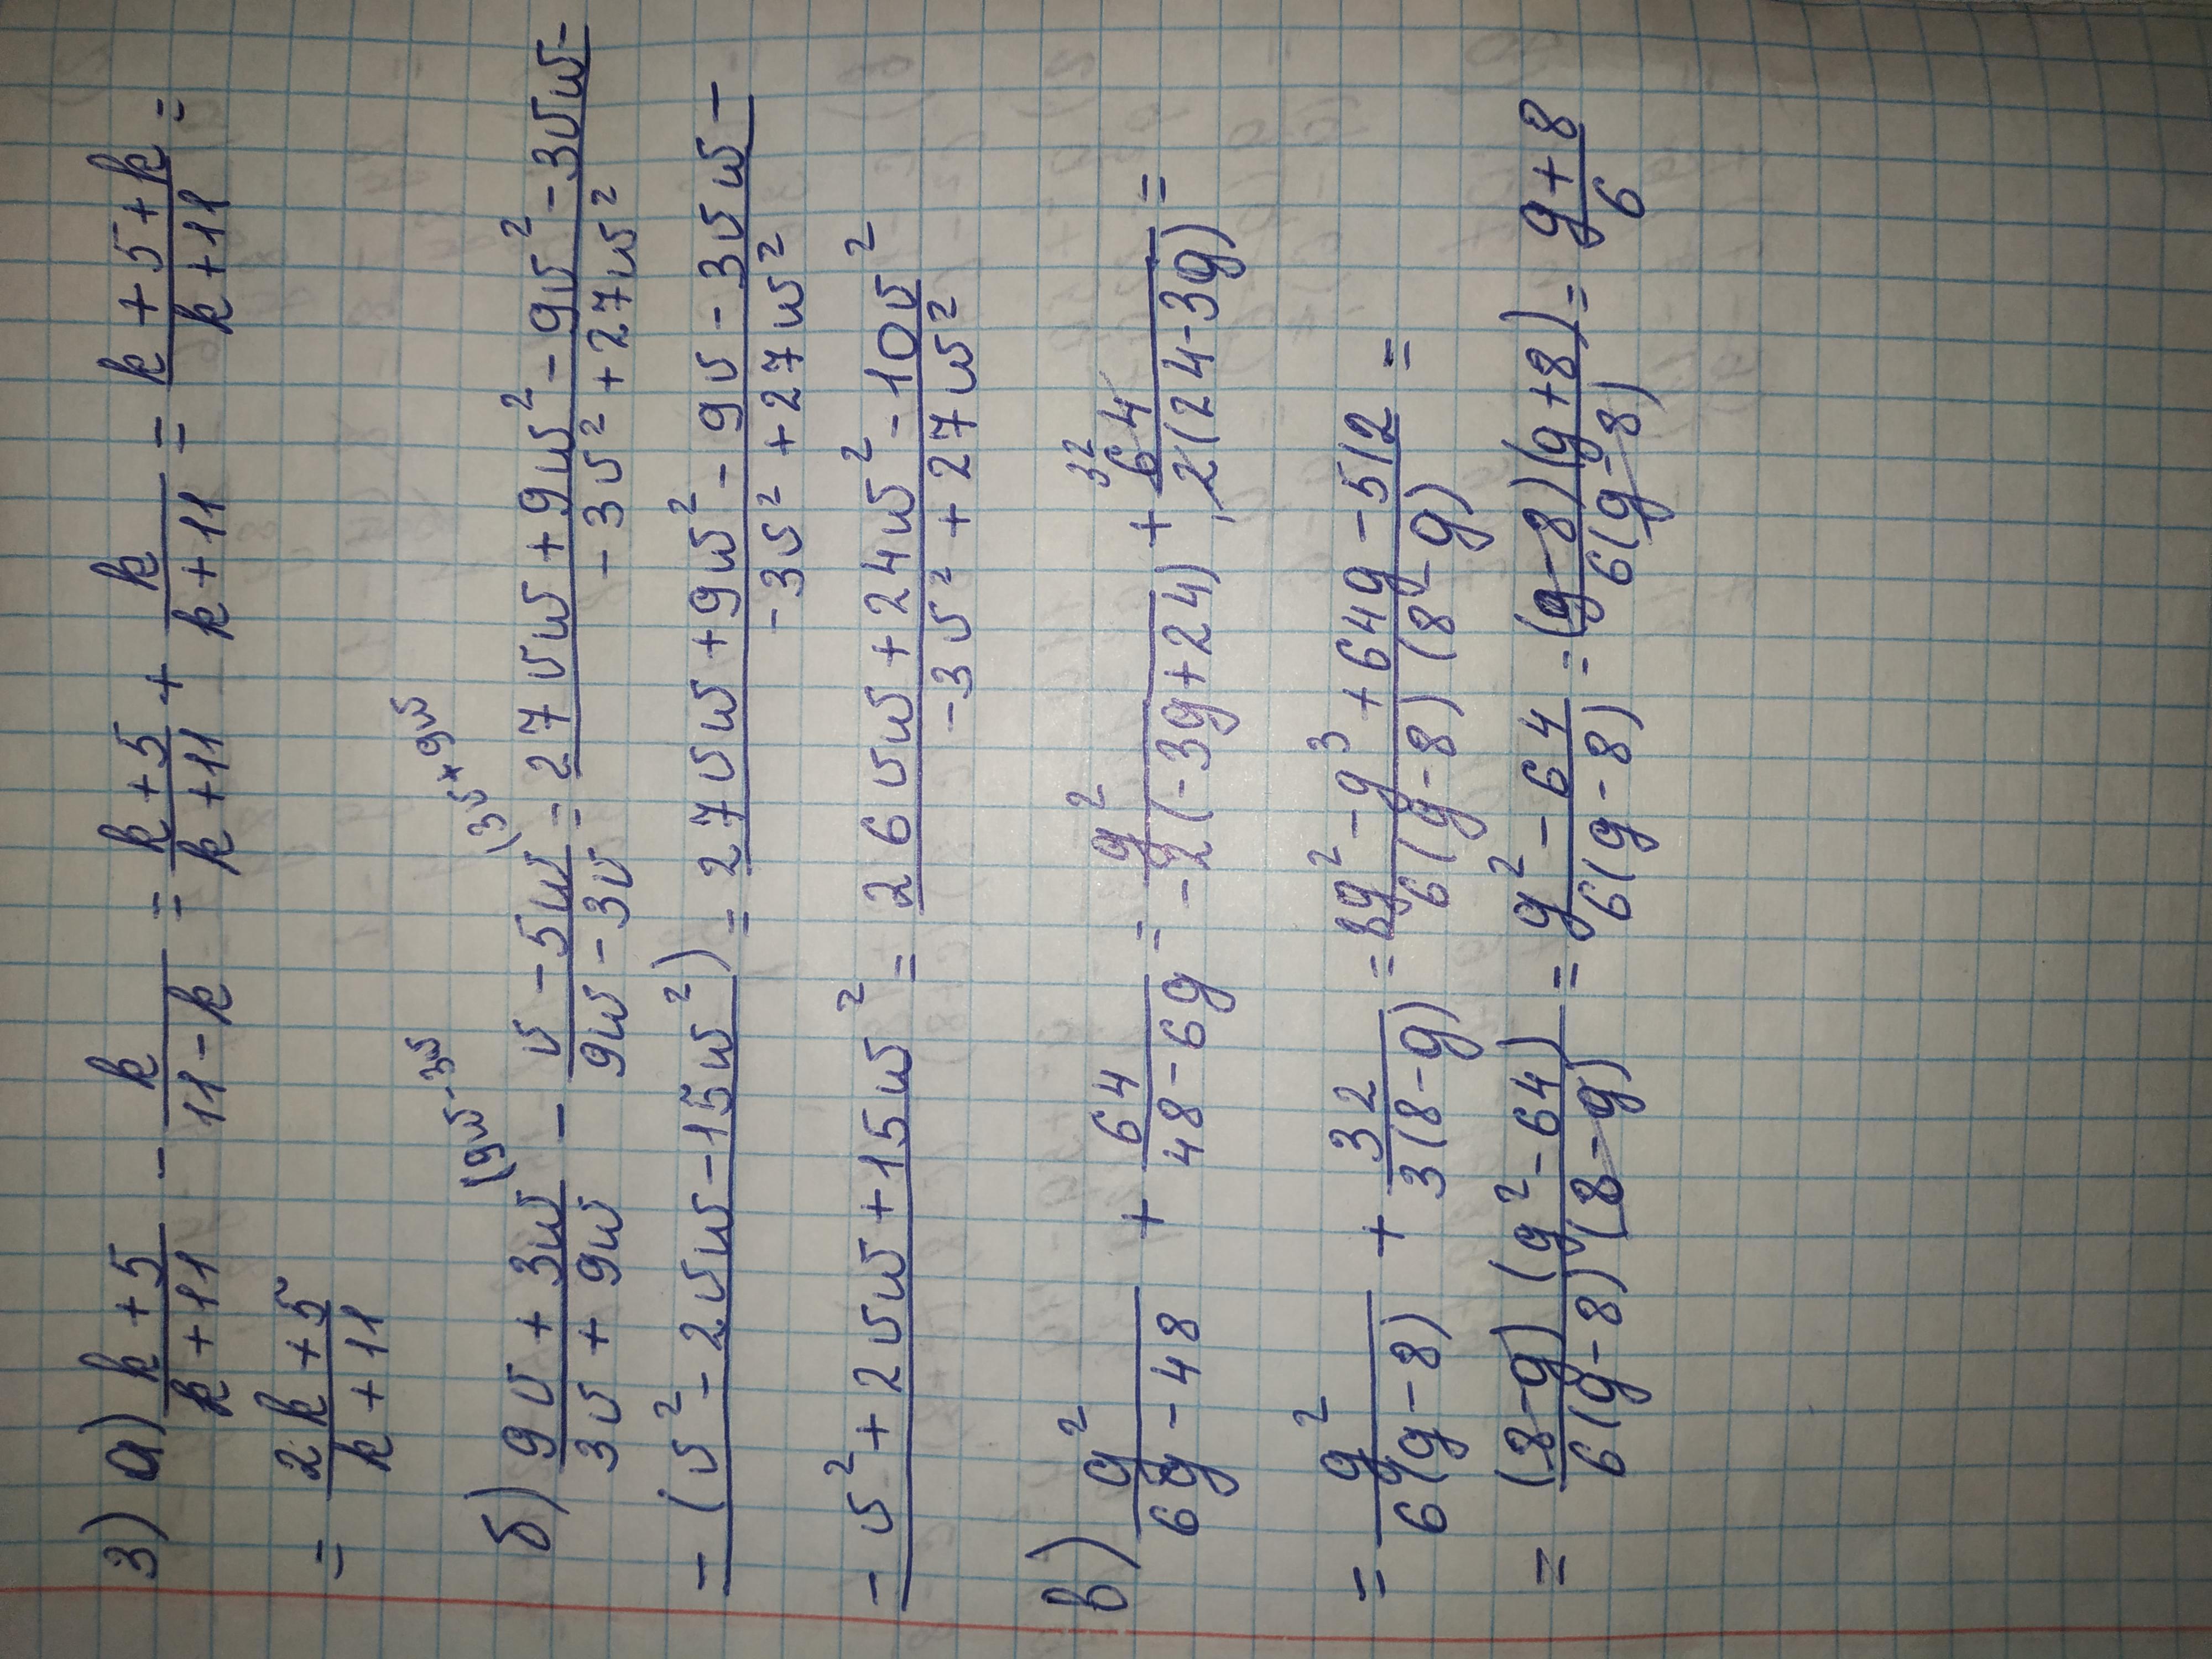 3) а) (k+5)/(k+11) - k/(11-k) = (k+5)/(k+11) + k/(k+11) = (k+5+k)/(k+11) =
= (2k+5)/(k+11)
(9w-3w (3v+9w
б) (9v+3w)/(3v+9w) - (v-5w)/(9w-3v) = (27vw+9w²-9v²-3vw-)/(-3v²+27w²)
-(v²-2vw-15w²) = (27vw+9w²-9v-3vw-)/(-3v²+27w²)
-v²+2vw+15w² = (26vw+24w²-10v²)/(-3v²+27w²)
в) g²/(6g-48) + 64/(48-6g) = g²/(-2(-3g+24)) + 64/(2(24-3g)) =
32
= g²/(6(g-8)) + 32/(3(8-g)) = (8g²-g³+64g-512)/(6(g-8)(8-g)) =
= ((8-g)(g²-64))/(6(g-8)(8-g)) = (g²-64)/(6(g-8)) = ((g-8)(g+8))/(6(g-8)) = (g+8)/6